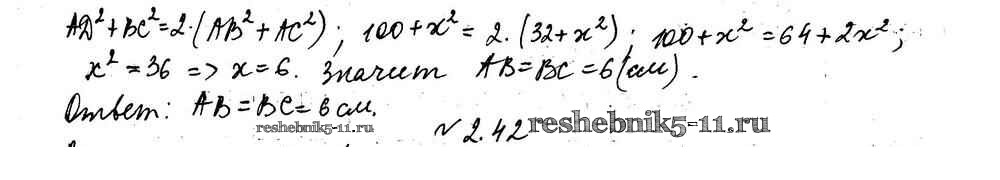 AD²+BC²=2·(AB²+AC²); 100+x²=2·(32+x²); 100+x²=64+2x²;
x²=36 => x=6. Значит AB=BC=6(см).
Ответ: AB=BC=6 см.
reshebnik5-11.ru.
N 2.42 reshebnik5-11.ru